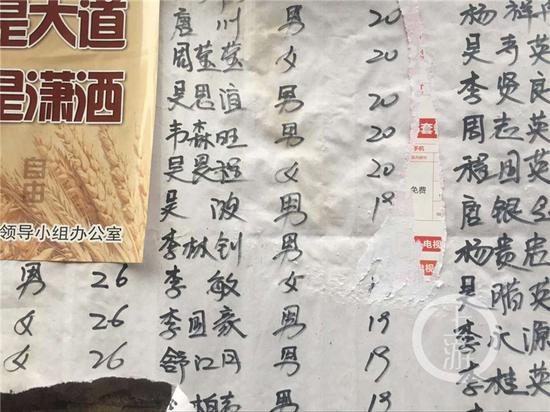 是大道
是潇洒
自由
领导小组办公室
男 26
女 26
女 26
唐 川 男 20
周莹莹 女 20
吴思谊 男 20
韦森旺 男 20
吴晨程 女 20
吴波 男 19
李林钊 男
李敏 女
李国豪 男 19
舒江丹 男 19
柏 男 18
杨祥
吴秀英
李贤良
周志英
程国英
唐银
杨贵
吴腊英
李永源
李桂英
套
手机
免费
电视
电视
上游